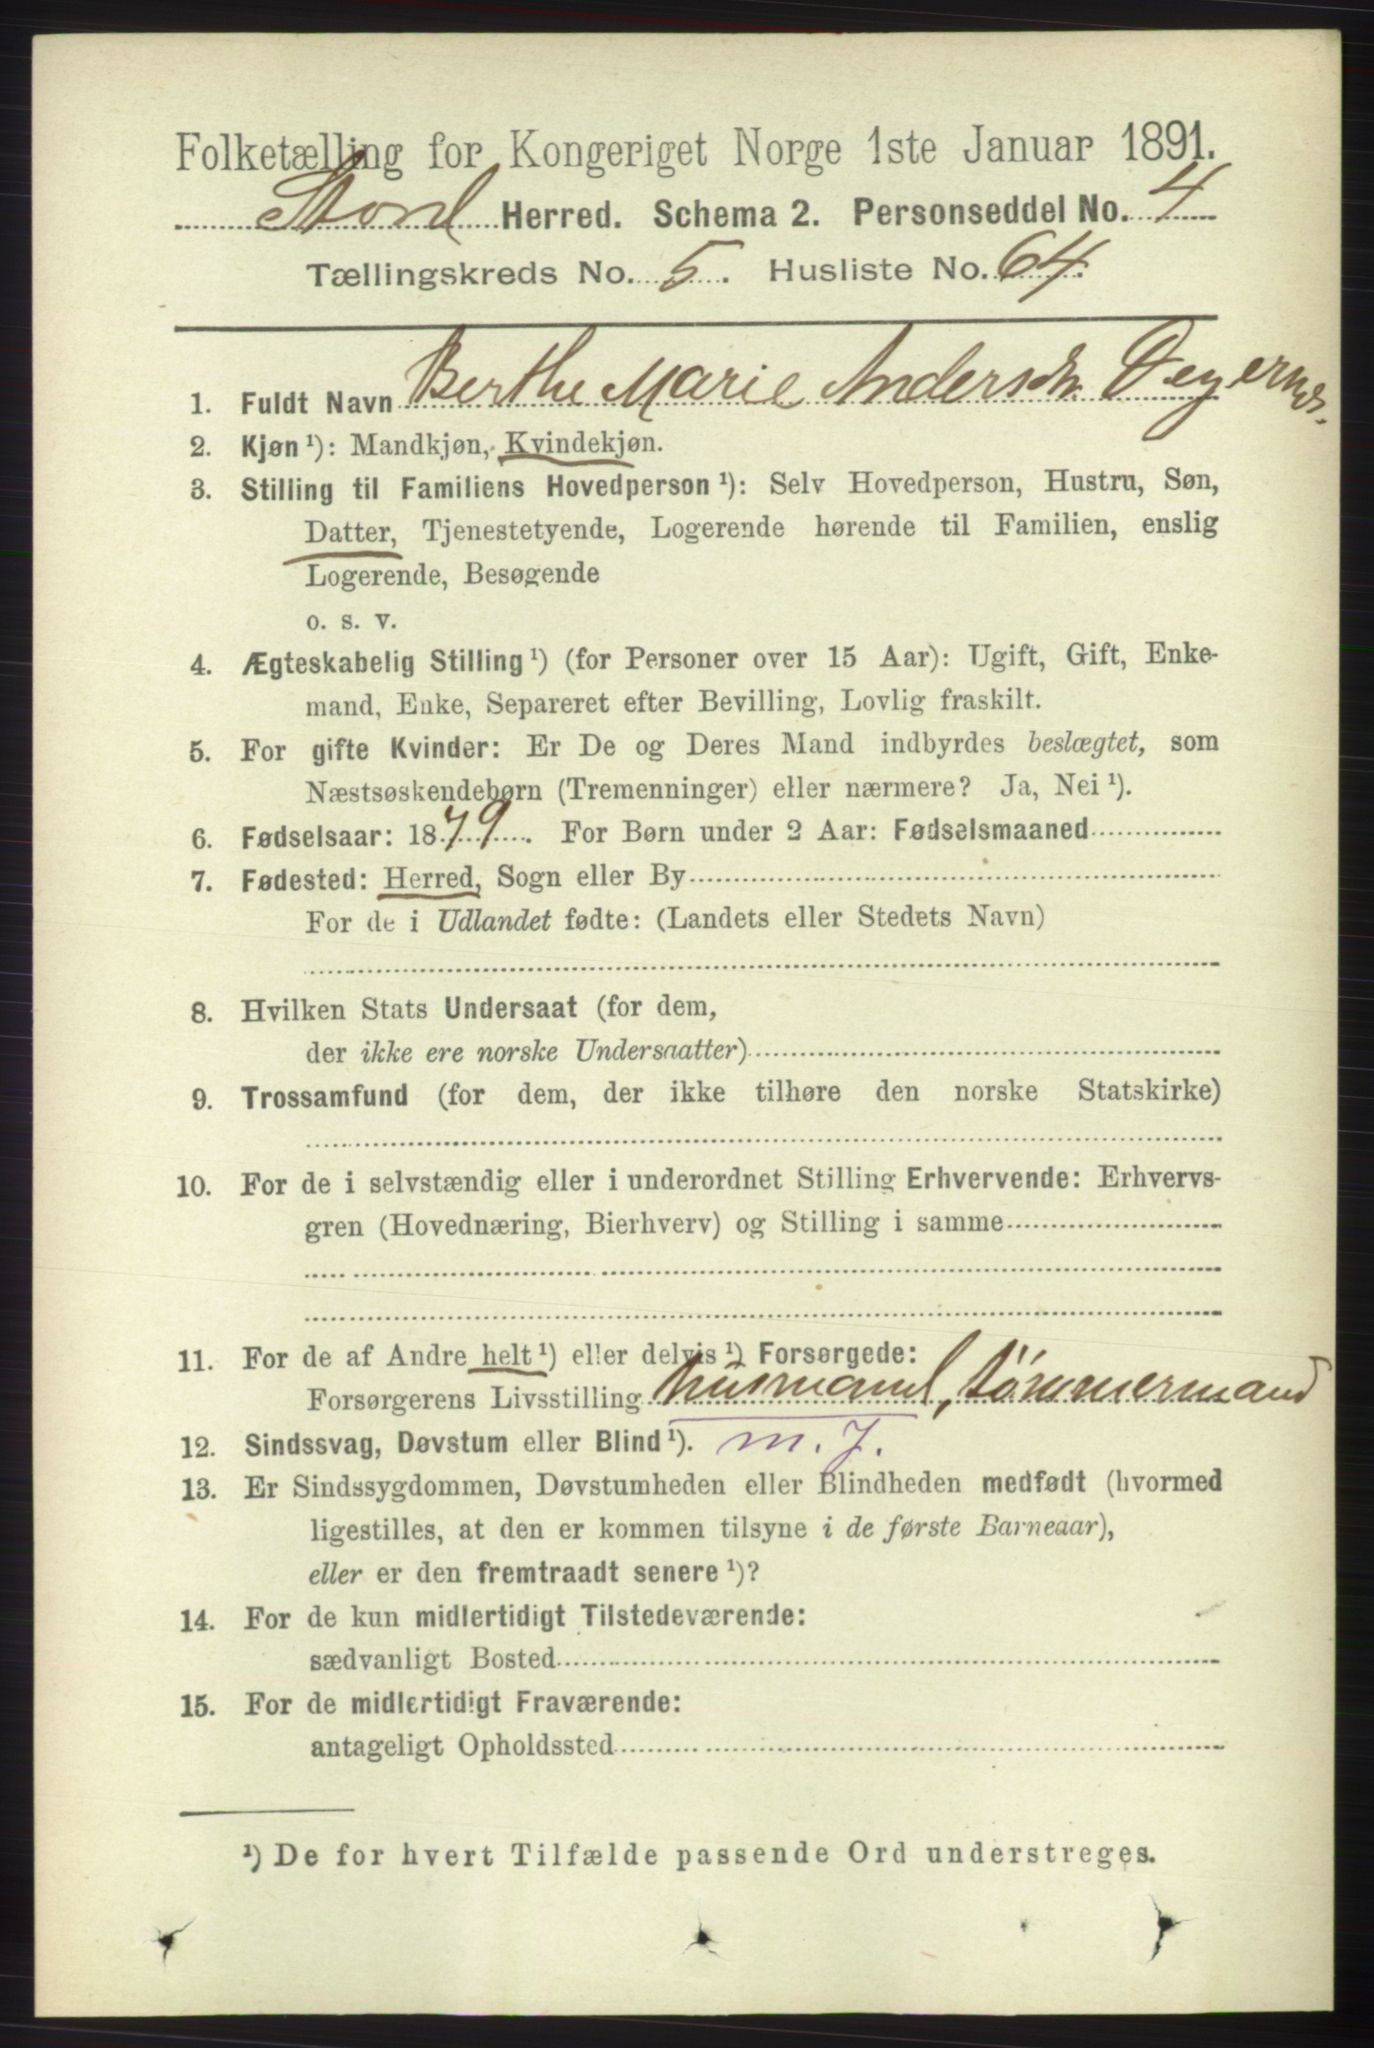 Folketælling for Kongeriget Norge 1ste Januar 1891.
Stord Herred. Schema 2. Personseddel No. 4
Tællingskreds No. 5. Husliste No. 64.
1. Fuldt Navn Berthe Marie Andersdtr. Degernes.
2. Kjøn ¹): Mandkjøn, Kvindekjøn.
3. Stilling til Familiens Hovedperson ¹): Selv Hovedperson, Hustru, Søn,
Datter, Tjenestetyende, Logerende hørende til Familien, enslig
Logerende, Besøgende
o. s. v.
4. Ægteskabelig Stilling ¹) (for Personer over 15 Aar): Ugift, Gift, Enke-
mand, Enke, Separeret efter Bevilling, Lovlig fraskilt.
5. For gifte Kvinder: Er De og Deres Mand indbyrdes beslægtet, som
Næstsøskendebørn (Tremenninger) eller nærmere? Ja, Nei ¹).
6. Fødselsaar: 1879. For Børn under 2 Aar: Fødselsmaaned
7. Fødested: Herred, Sogn eller By
For de i Udlandet fødte: (Landets eller Stedets Navn)
8. Hvilken Stats Undersaat (for dem,
der ikke ere norske Undersaatter)
9. Trossamfund (for dem, der ikke tilhøre den norske Statskirke)
10. For de i selvstændig eller i underordnet Stilling Erhvervende: Erhvervs-
gren (Hovednæring, Bierhverv) og Stilling i samme
11. For de af Andre helt ¹) eller delvis ¹) Forsørgede:
Forsørgerens Livsstilling husmand, tømmermand
12. Sindssvag, Døvstum eller Blind ¹). m. J.
13. Er Sindssygdommen, Døvstumheden eller Blindheden medfødt (hvormed
ligestilles, at den er kommen tilsyne i de første Barneaar),
eller er den fremtraadt senere ¹)?
14. For de kun midlertidigt Tilstedeværende:
sædvanligt Bosted
15. For de midlertidigt Fraværende:
antageligt Opholdssted
¹) De for hvert Tilfælde passende Ord understreges.